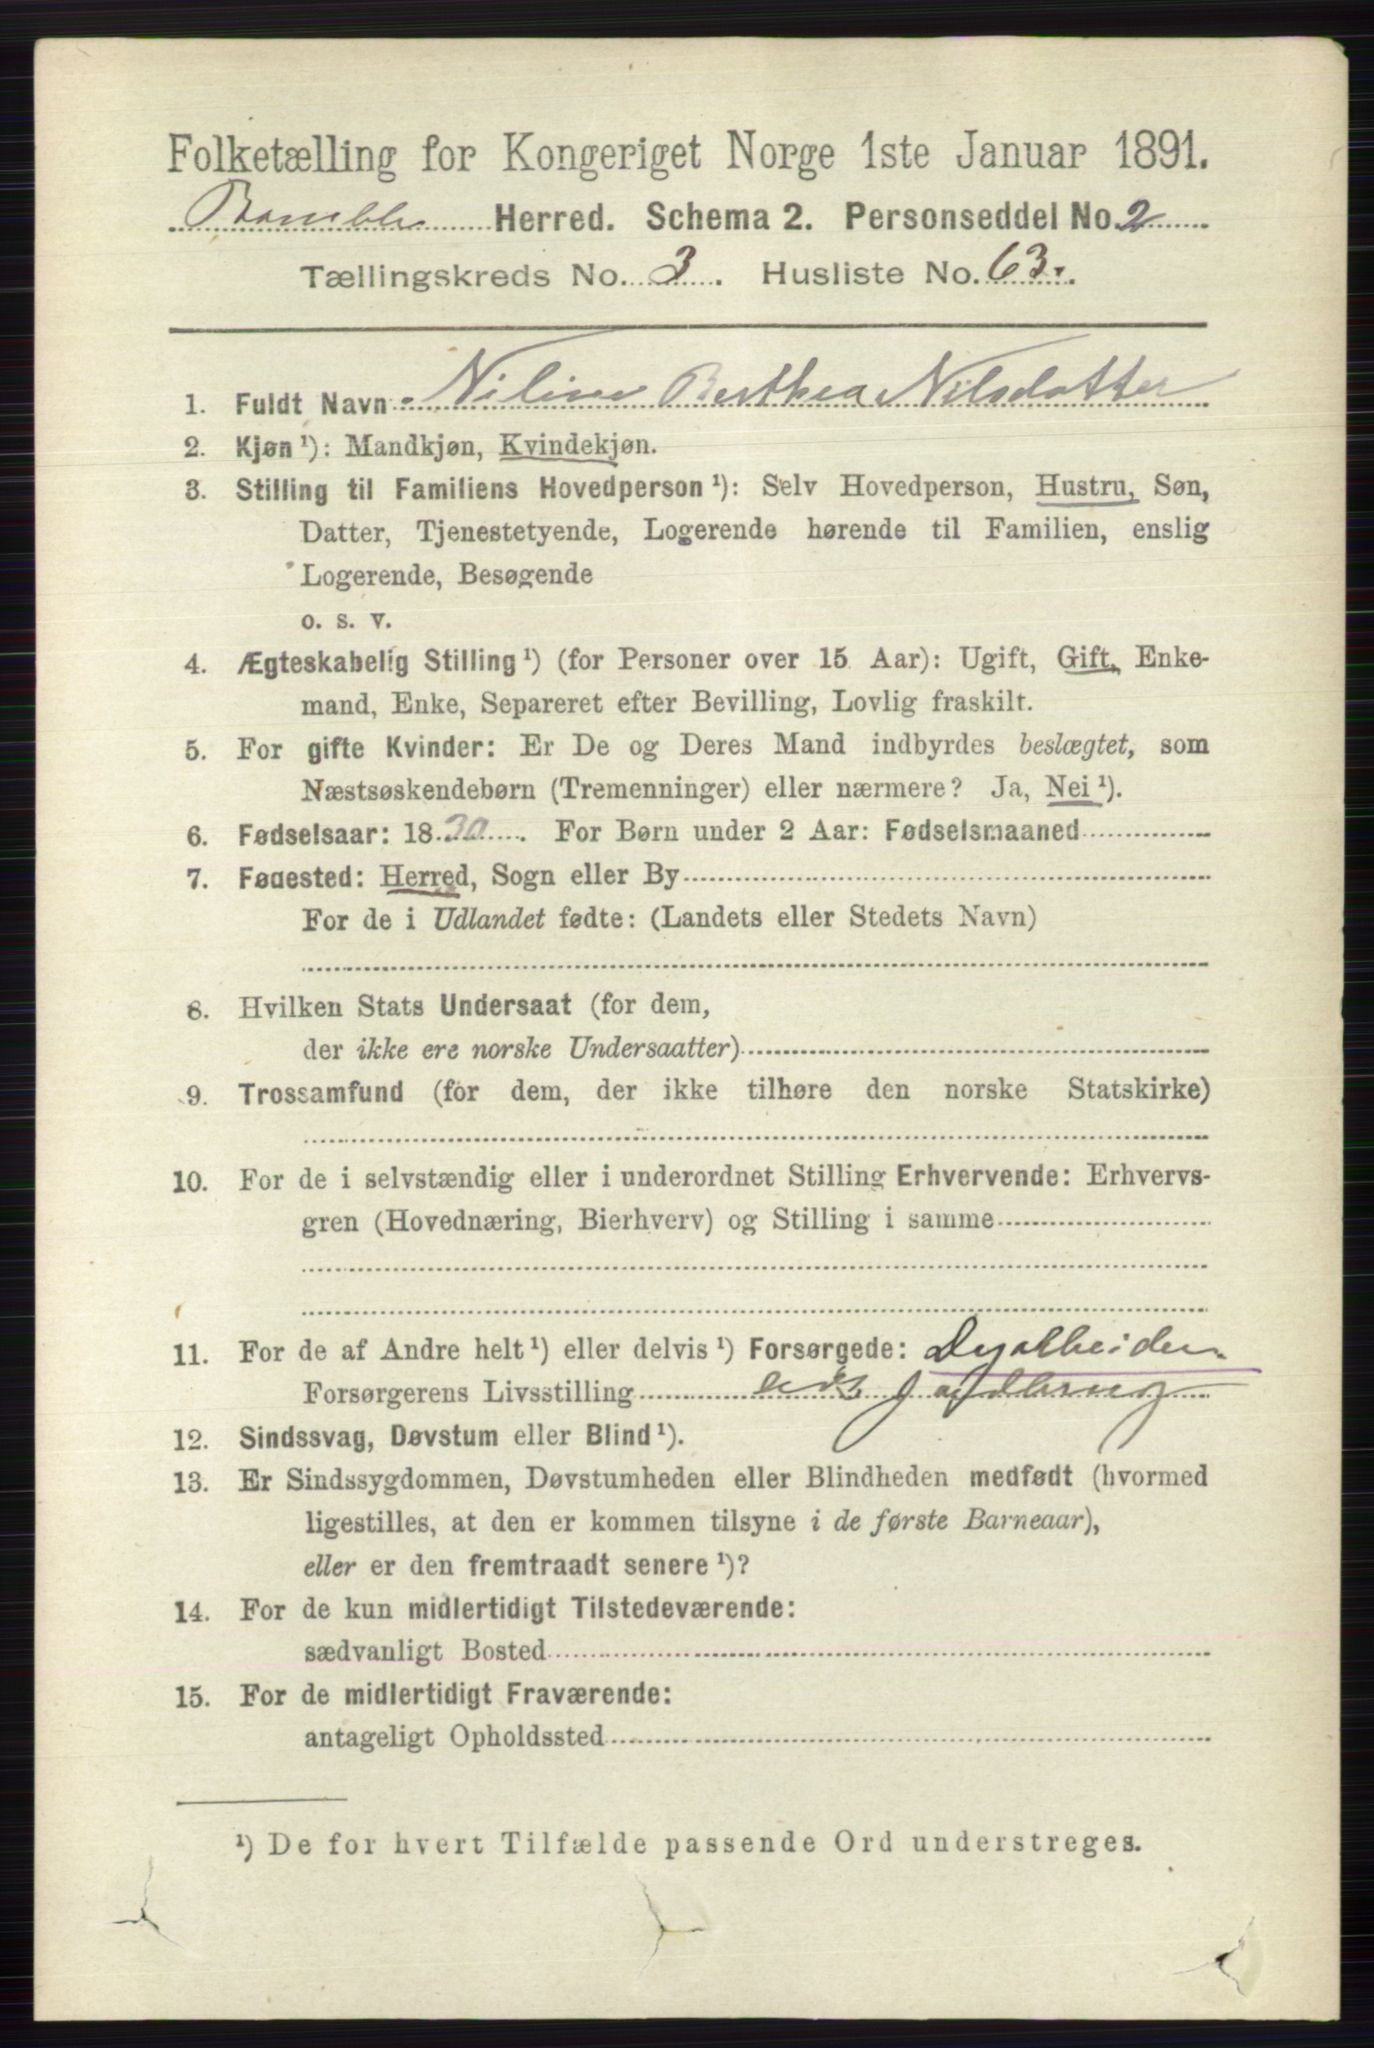 Folketælling for Kongeriget Norge 1ste Januar 1891.
Bamble Herred. Schema 2. Personseddel No. 2
Tællingskreds No. 3. Husliste No. 63.
1. Fuldt Navn Niline Berthea Nilsdatter
2. Kjøn ¹): Mandkjøn, Kvindekjøn.
3. Stilling til Familiens Hovedperson ¹): Selv Hovedperson, Hustru, Søn,
Datter, Tjenestetyende, Logerende hørende til Familien, enslig
Logerende, Besøgende
o. s. v.
4. Ægteskabelig Stilling ¹) (for Personer over 15 Aar): Ugift, Gift, Enke-
mand, Enke, Separeret efter Bevilling, Lovlig fraskilt.
5. For gifte Kvinder: Er De og Deres Mand indbyrdes beslægtet, som
Næstsøskendebørn (Tremenninger) eller nærmere? Ja, Nei ¹).
6. Fødselsaar: 1830. For Børn under 2 Aar: Fødselsmaaned
7. Fødested: Herred, Sogn eller By
For de i Udlandet fødte: (Landets eller Stedets Navn)
8. Hvilken Stats Undersaat (for dem,
der ikke ere norske Undersaatter)
9. Trossamfund (for dem, der ikke tilhøre den norske Statskirke)
10. For de i selvstændig eller i underordnet Stilling Erhvervende: Erhvervs-
gren (Hovednæring, Bierhverv) og Stilling i samme
11. For de af Andre helt ¹) eller delvis ¹) Forsørgede:
Forsørgerens Livsstilling
12. Sindssvag, Døvstum eller Blind ¹).
13. Er Sindssygdommen, Døvstumheden eller Blindheden medfødt (hvormed
ligestilles, at den er kommen tilsyne i de første Barneaar),
eller er den fremtraadt senere ¹)?
14. For de kun midlertidigt Tilstedeværende:
sædvanligt Bosted
15. For de midlertidigt Fraværende:
antageligt Opholdssted
¹) De for hvert Tilfælde passende Ord understreges.